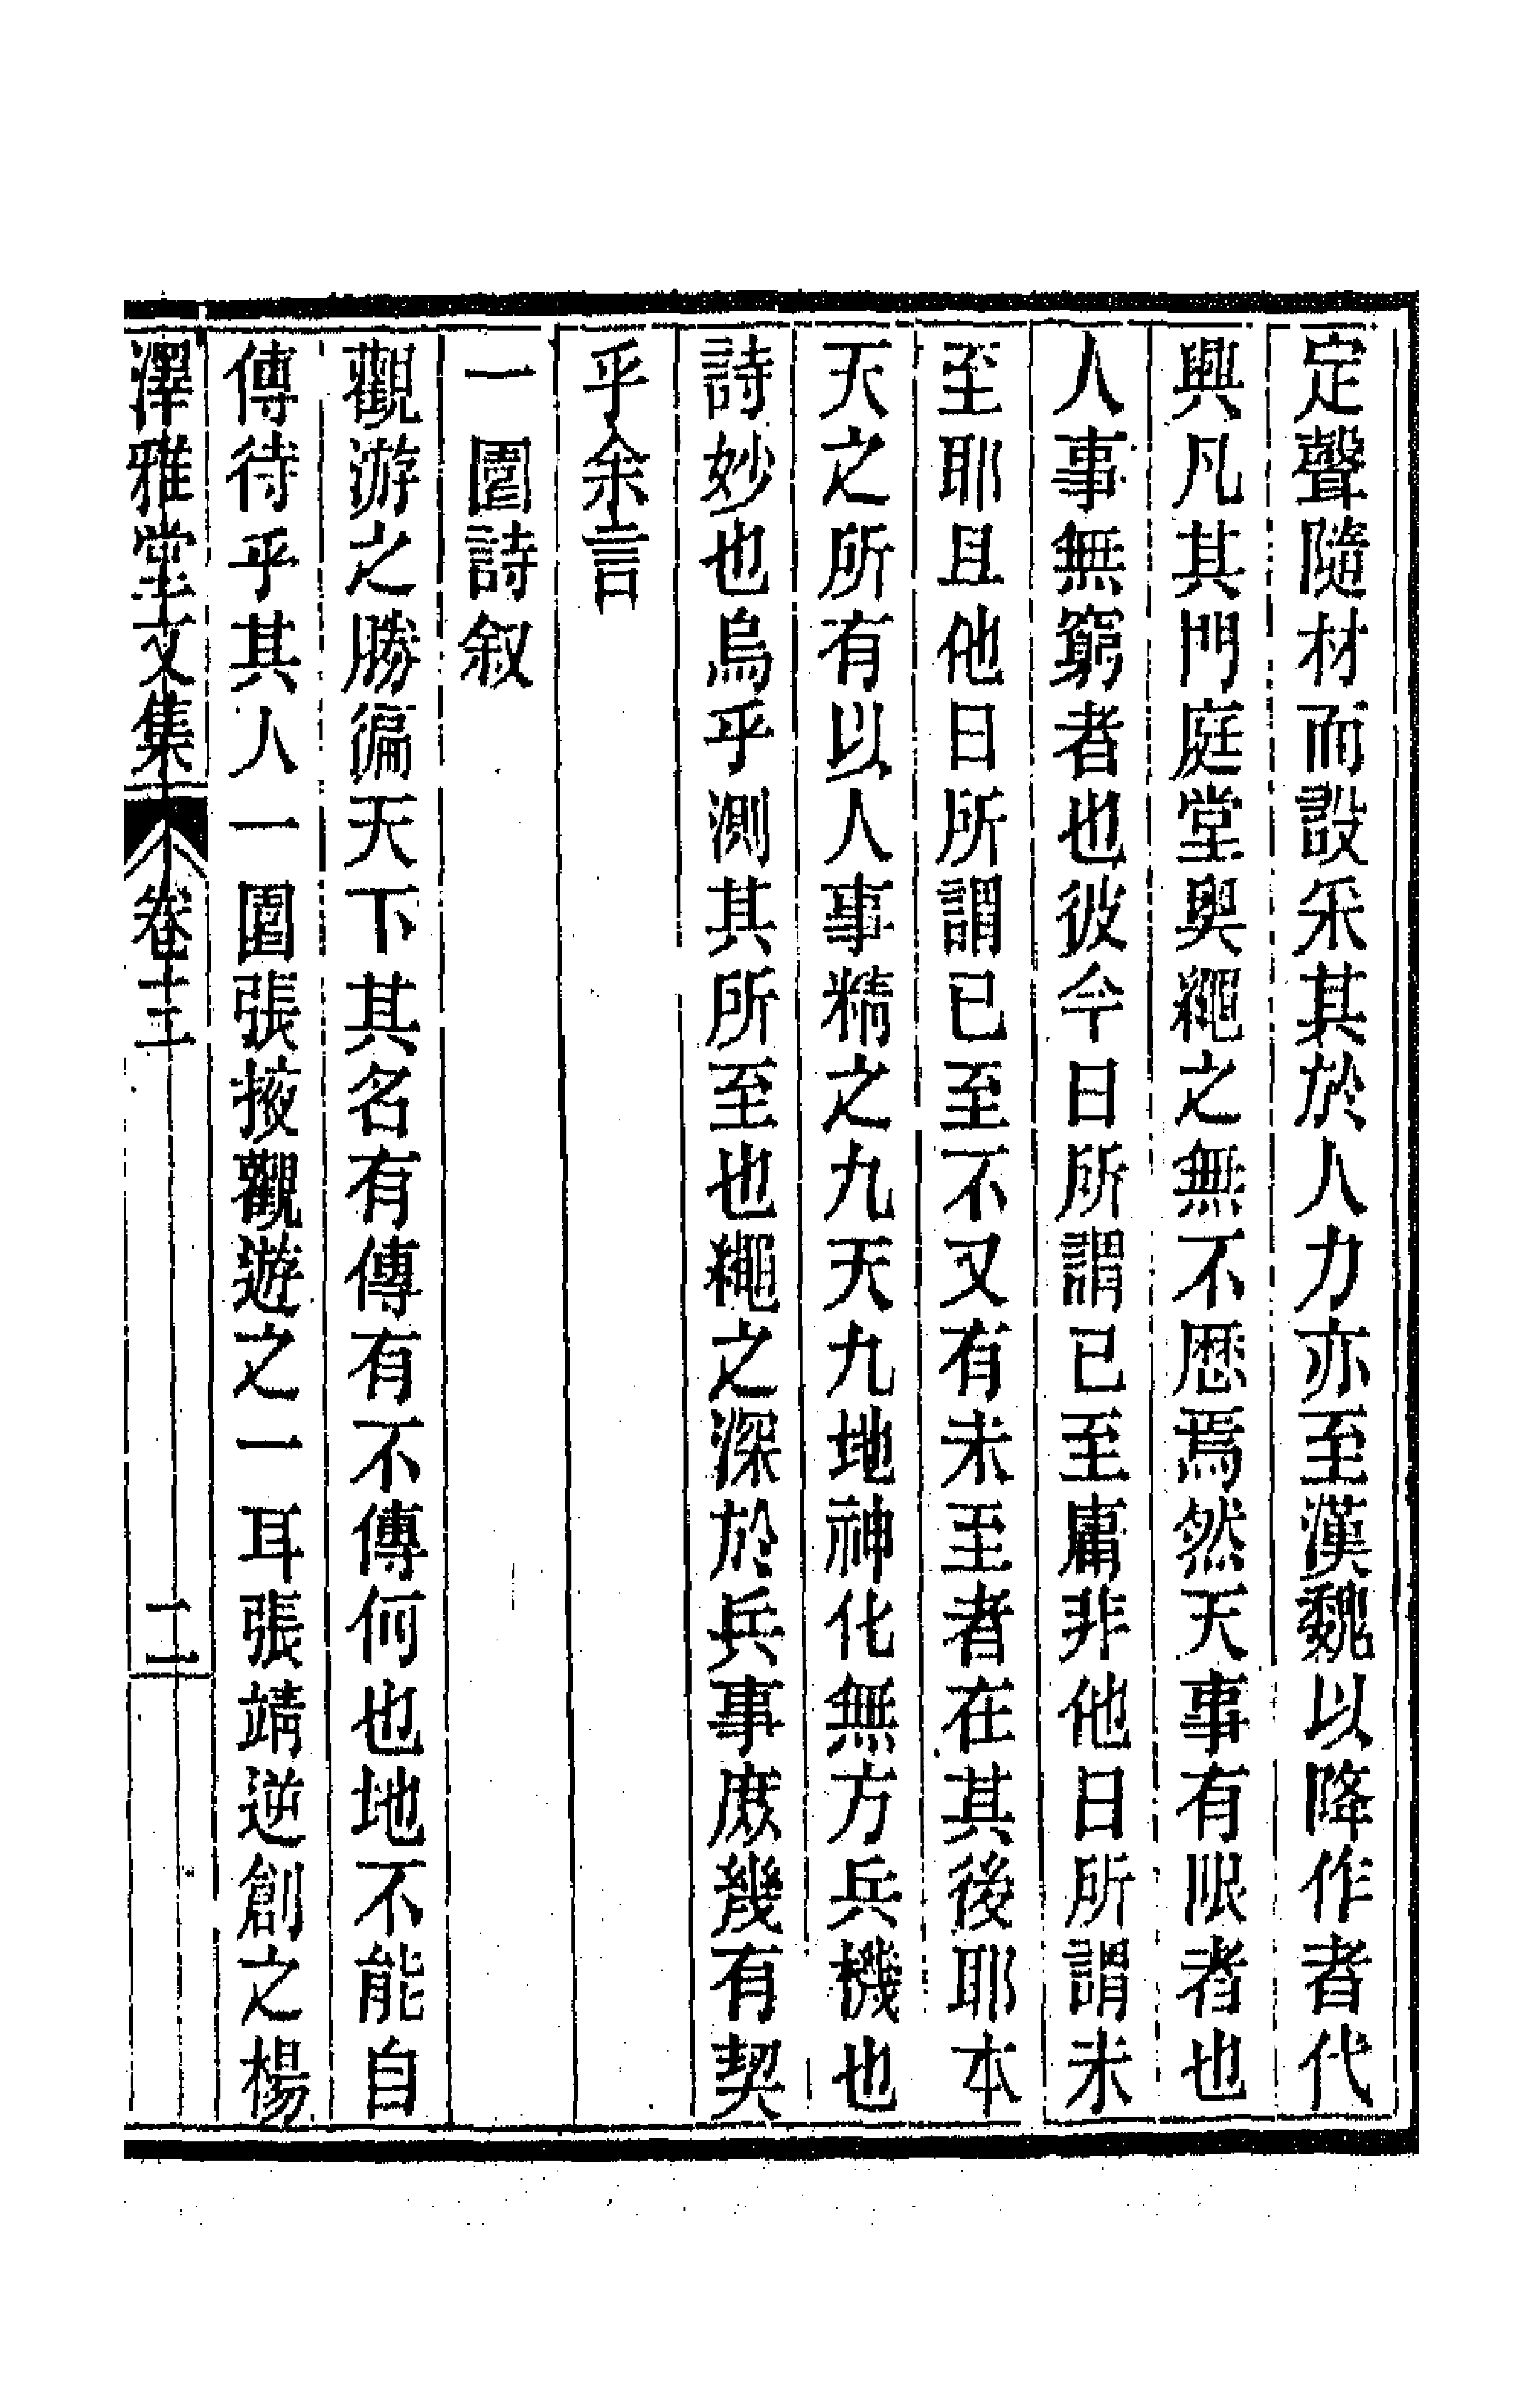 定聲隨材而設采其於人力亦至漢魏以降作者代
興凡其門庭堂奧繩之無不歷焉然天事有限者也
人事無窮者也彼今日所謂已至庸非他日所謂未
至耶且他日所謂已至不又有未至者在其後耶本
天之所有以人事精之九天九地神化無方兵機也
詩妙也烏乎測其所至也繩之深於兵事庶幾有契
乎余言
一圍詩叙
觀游之勝徧天下其名有傳有不傳何也地不能自
傳待乎其人一圍張掖觀遊之一耳張靖逆創之楊
澤雅堂文集 卷三 二